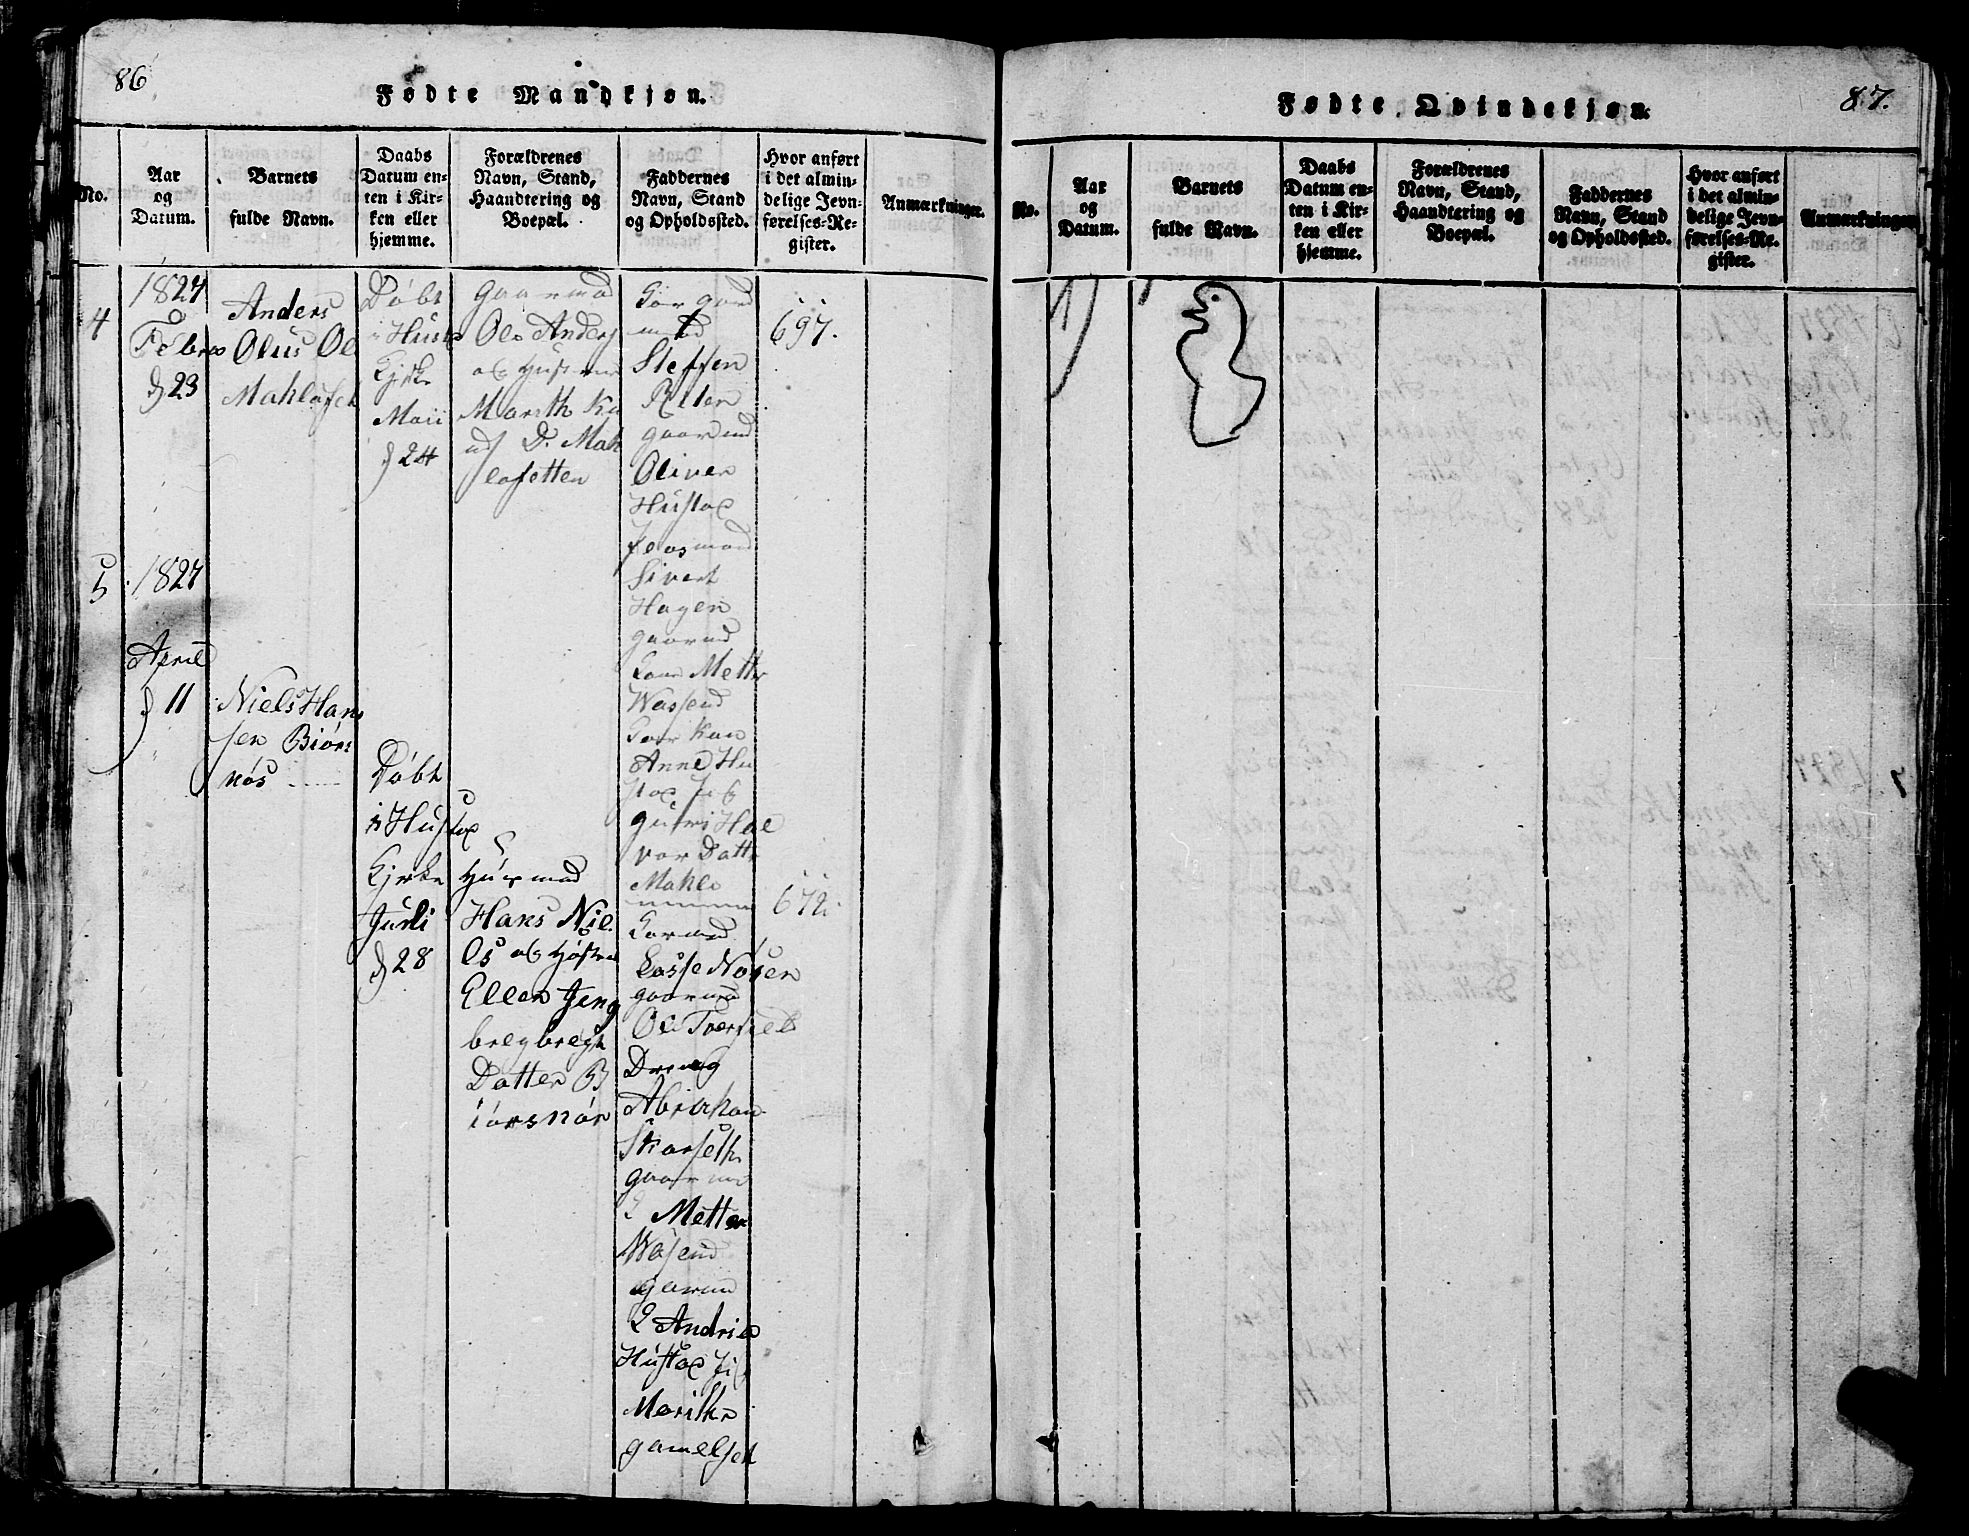 86
Fødte Mandkjøn.
No.
Aar
og
Datum.
Barnets
fulde Navn.
Daabs
Datum en-
ten i Kir-
ken eller
hjemme.
Forældrenes
Navn, Stand,
Haandtering og
Boepæl.
Faddernes
Navn, Stand
og Opholdssted.
Hvor anført
i det almin-
delige Jevn-
førelses-Re-
gister.
Anmærkninger.
4
1827
Febru
d 23
Anders
Olus Ol
Mahlaset
Døbt
i Hustx
Kjrke
Maii
d 24
Gaarmad
Ole Anders
og Hustrue
Marith
D. Mah
lasetten
Gaar
mad
Steffen
Reten
gaarmd
Oliver
Hustax
Sivert
Hagen
gaarmd
Mette
Wassend
Kon
Anne Hu
stax
guri Hal
vor Datt
Mahle
697.
5
1827
April
d 11
Niels Han
sen Biørs
nøs
Døbt
i Hustax
Kjrke
Juli
d 28
Husmad
Hans Niel
Es og Hustru
Ellen Jeng
bregbregt
Datter B
iørsnøs
Garmd
Lasse Nøsen
gaarmd
Ole Tverfield
Dreng
Abraham
Skarseth
gaarmd
Mette
Wasend
garmd
Andrie
Hustax
Marithe
gamelset
672
87.
Fødte Qvindekjøn.
No.
Aar
og
Datum.
Barnets
fulde Navn.
Daabs
Datum en-
ten i Kir-
ken eller
hjemme.
Forældrenes
Navn, Stand,
Haandtering og
Boepæl.
Faddernes
Navn, Stand
og Opholdssted.
Hvor anført
i det almin-
delige Jevn-
førelses-Re-
gister.
Anmærkninger